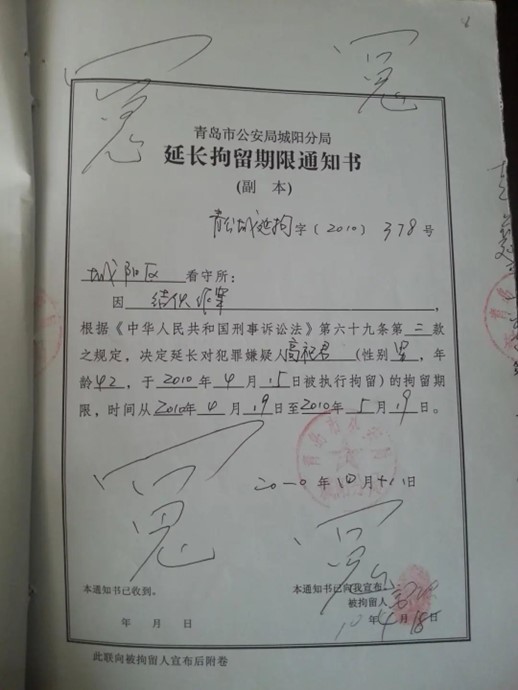 冤 冤
青岛市公安局城阳分局
延长拘留期限通知书
(副 本)
青公城延拘字（2010）378号
城阳区看守所：
因 结伙作案，
根据《中华人民共和国刑事诉讼法》第六十九条第二款
之规定，决定延长对犯罪嫌疑人高祀君（性别男，年
龄42，于2010年4月15日被执行拘留)的拘留期
限，时间从2010年4月19日至2010年5月19日。
二〇一〇年四月十八日
冤 冤
本通知书已收到。
年 月 日
本通知书已向我宣布。
被拘留人
10年4月18日
此联向被拘留人宣布后附卷